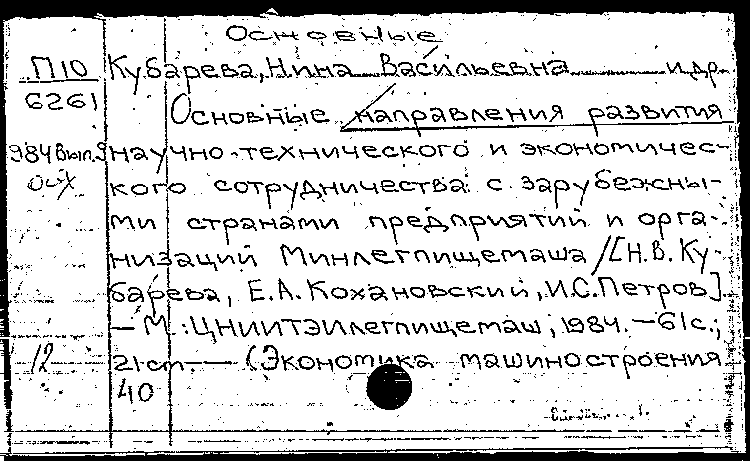 Основные
П10 Кубарева, Нина Васильевна и др.
6261 Основные направления развития
984 Вып.9 научно-технического и экономичес-
кого сотрудничества с зарубежны-
ми странами предприятий и орга-
низаций Минлегпищемаша / [Н.В. Ку-
барева, Е.А. Кохановский, И.С. Петров].
— М.: ЦНИИТЭИлегпищемаш, 1984. — 61 с.;
12 21 см. — (Экономика машиностроения
40